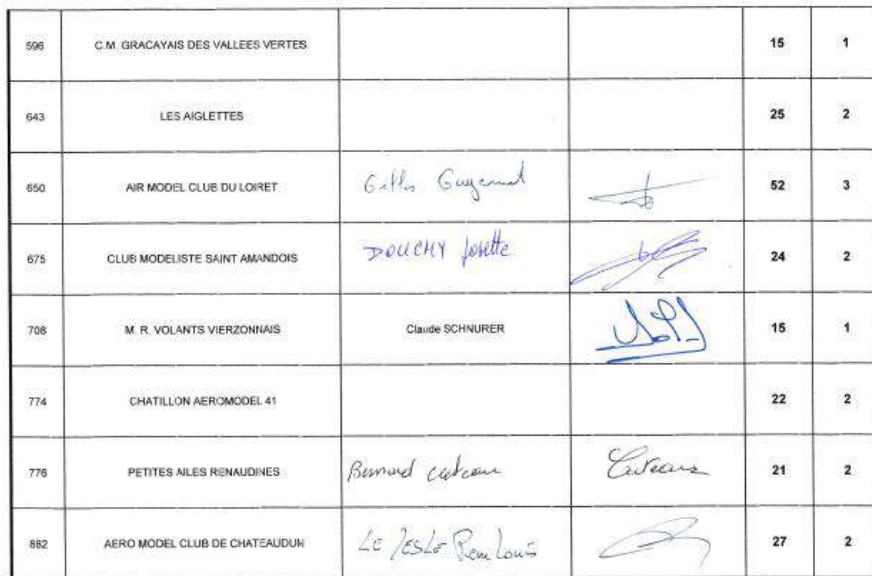 596 C.M. GRACAYAIS DES VALLEES VERTES 15 1
643 LES AIGLETTES 25 2
650 AIR MODEL CLUB DU LOIRET Gilles 52 3
675 CLUB MODELISTE SAINT AMANDOIS DOUCHY Josette 24 2
708 M. R. VOLANTS VIERZONNAIS Claude SCHNURER 15 1
774 CHATILLON AEROMODEL 41 22 2
776 PETITES AILES RENAUDINES Bernard 21 2
882 AERO MODEL CLUB DE CHATEAUDUN 27 2